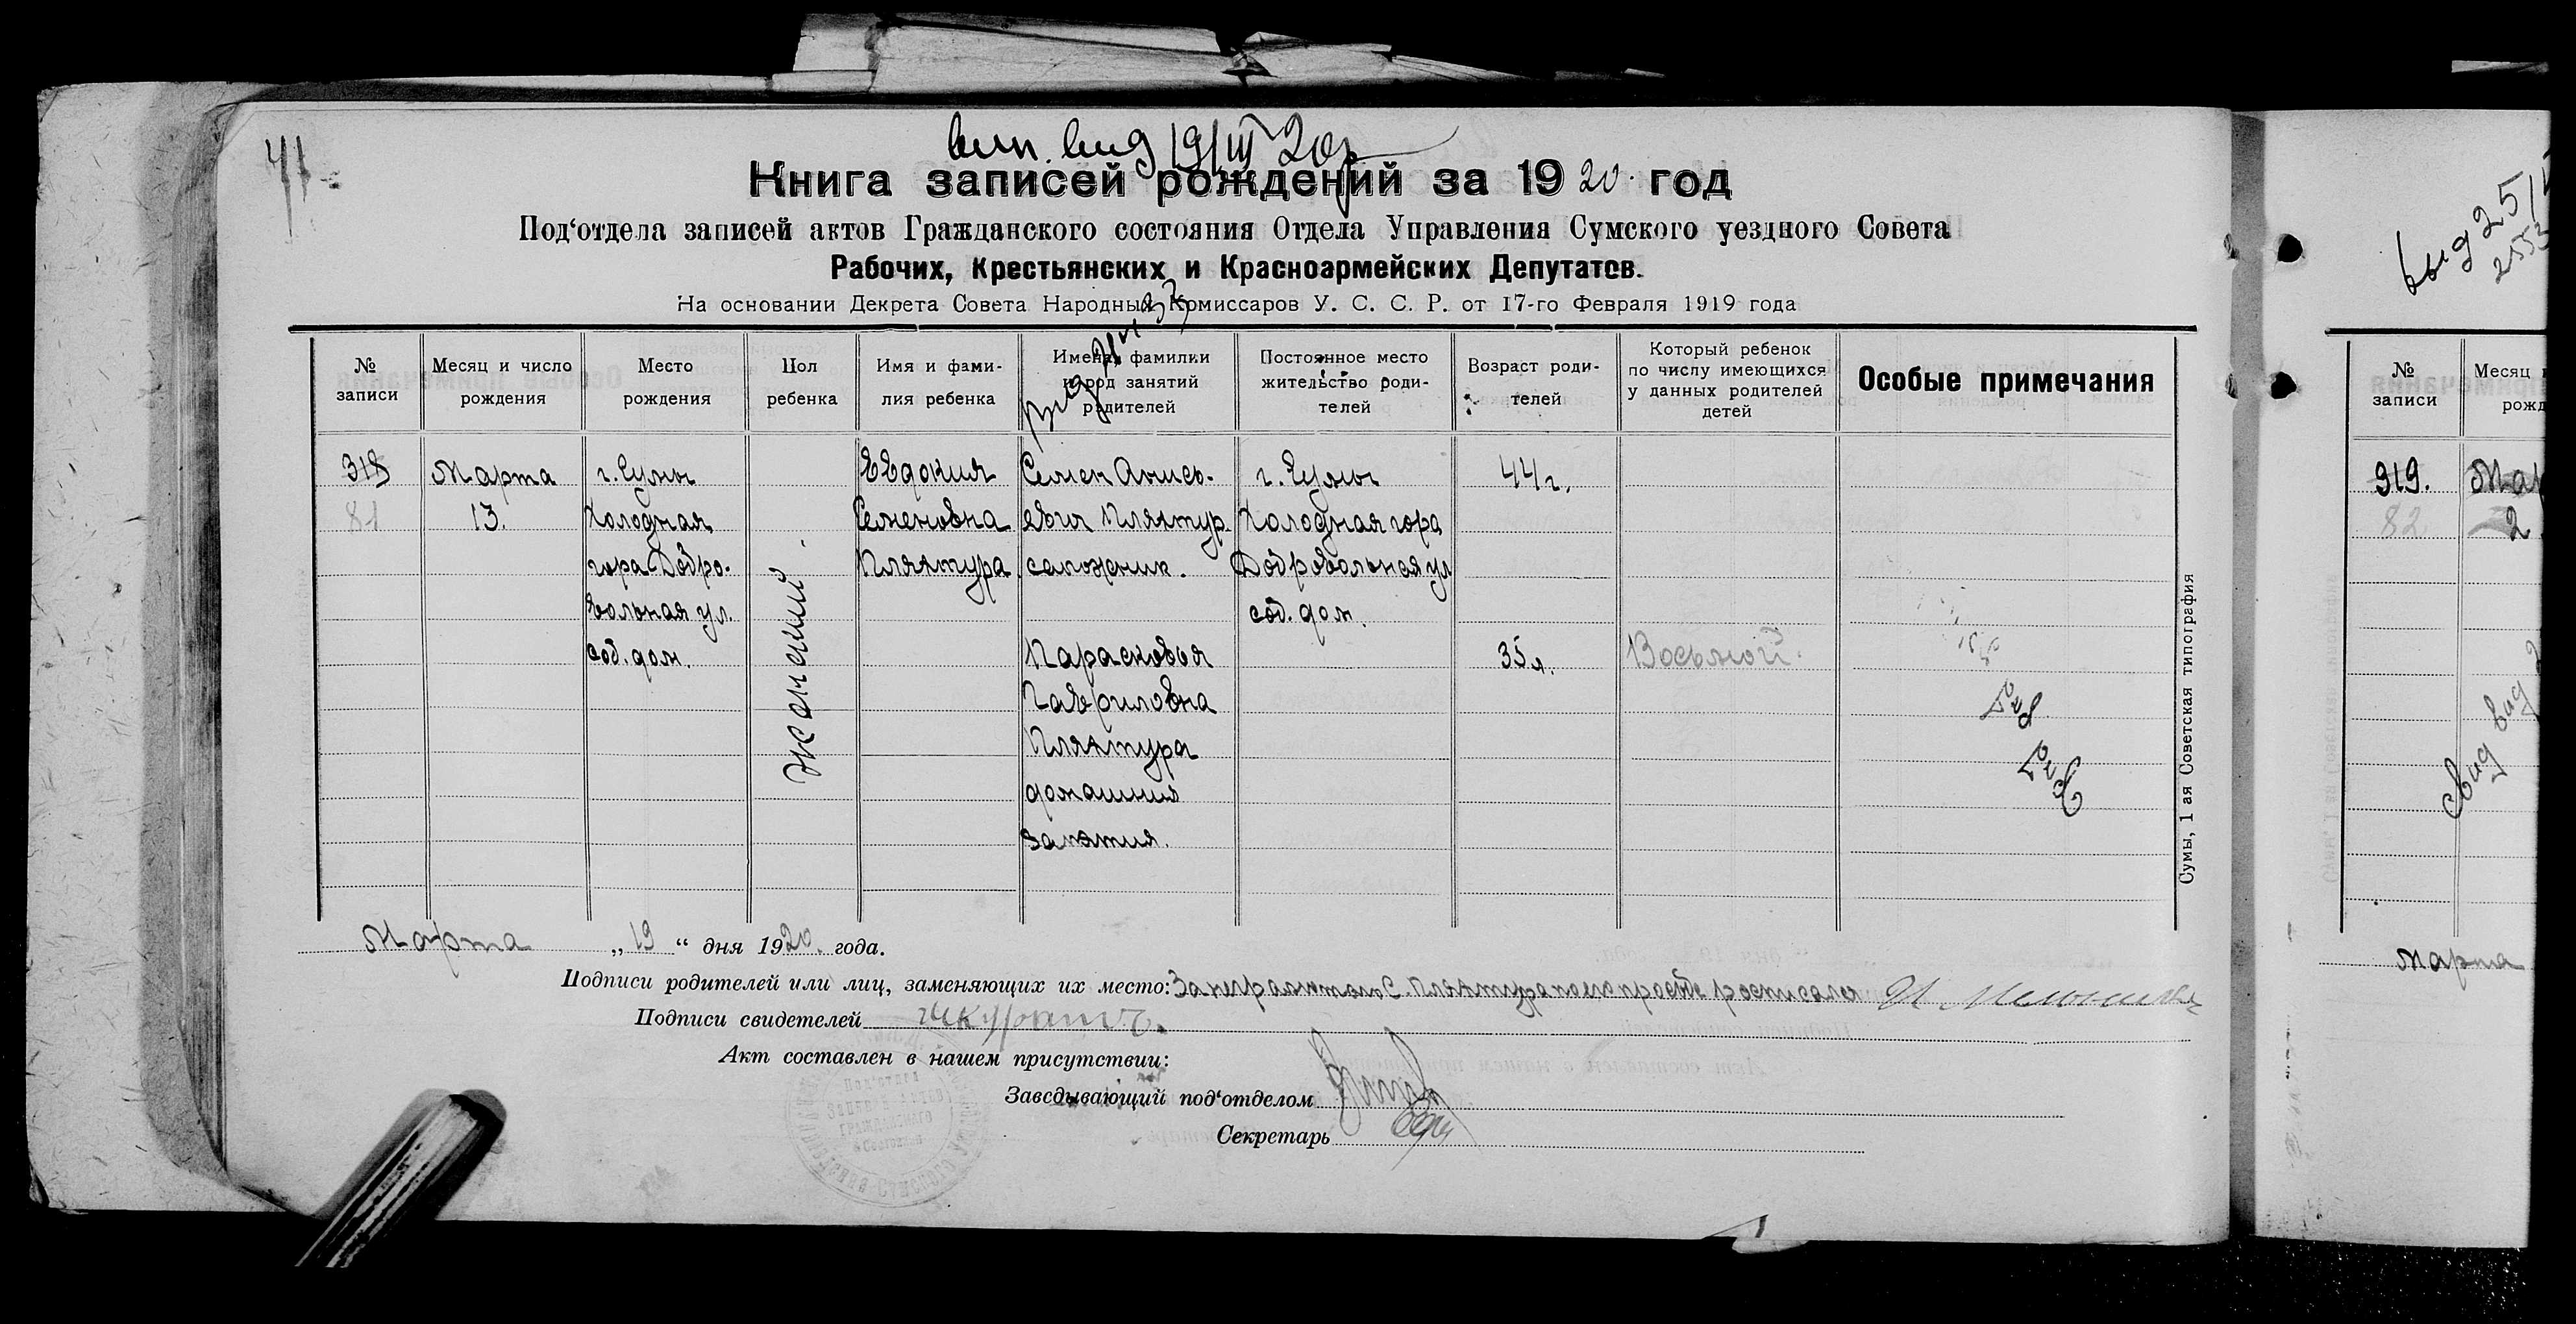 вып. вид 19/III 20г
Книга записей рождений за 1920. год
Под‘отдела записей актов Гражданского состояния Отдела Управления Сумского уездного Совета
Рабочих, Крестьянских и Красноармейских Депутатов.
На основании Декрета Совета Народных Комиссаров У. С. С. Р. от 17-го Февраля 1919 года
№ записи
Месяц и число рождения
Место рождения
Пол ребенка
Имя и фами-
лия ребенка
Имена, фамилии
и род занятий
родителей
Постоянное место
жительство роди-
телей
Возраст роди-
телей
Который ребенок
по числу имеющихся
у данных родителей
детей
Особые примечания
318
81
Марта
13.
г. Сумы
Холодная
гора Добро-
вольная ул.
соб. дом.
женский.
Евдокия
Семеновна
Пляхтура
Семен
Пляхтур
сапожник.
Парасковья
Гавриловна
Пляхтура
домашния
занятия.
г. Сумы
Холодная гора
Добровольная ул
соб. дом.
44 г.
35 л.
Восьмой.
Сумы, 1 ая Советская типография
Марта „19“ дня 1920. года.
Подписи родителей или лиц, заменяющих их место: За неграмотного С. Пляхтура по его просьбе росписался
Подписи свидетелей
Акт составлен в нашем присутствии:
Заведывающий под‘отделом
Секретарь
выд 25/
№
записи
Месяц
рожд
319.
82.
2
выд
Марта